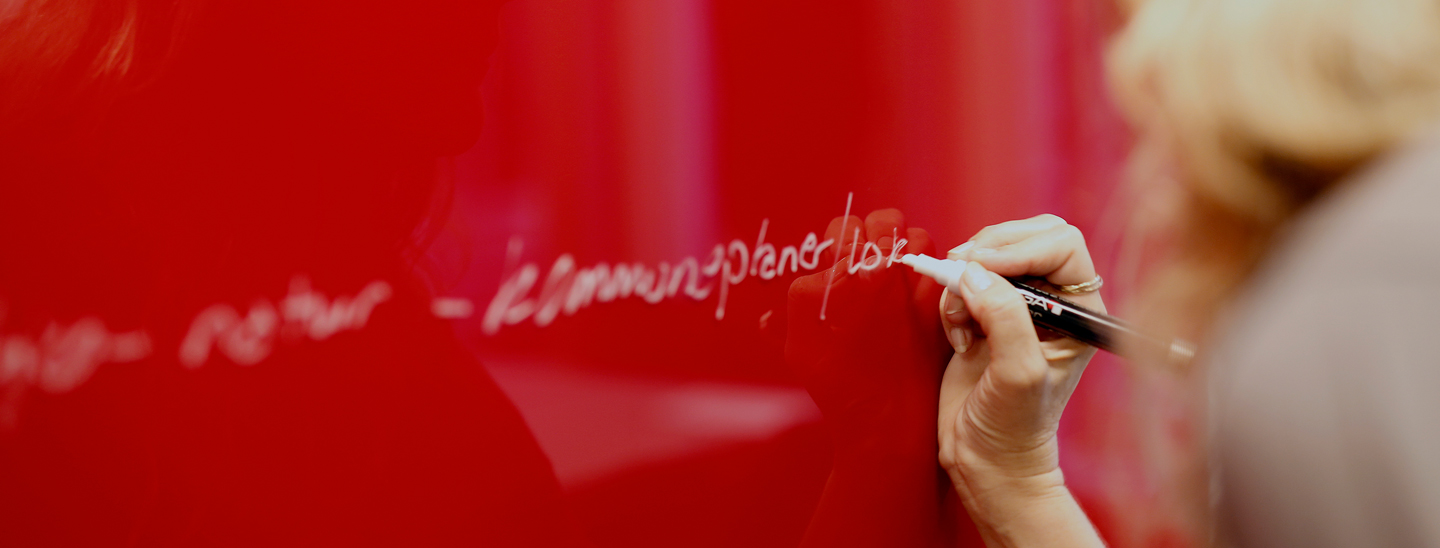 natur - kommuneplaner/lok